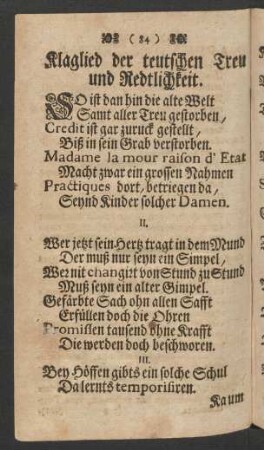 ( 84 )
Klaglied der teutschen Treu
und Redtlichkeit.
SO ist dan hin die alte Welt
Samt aller Treu gestorben,
Credit ist gar zuruck gestellt,
Biß in sein Grab verstorben.
Madame la mour raison d' Etat
Macht zwar ein grossen Nahmen
Practiques dort, betriegen da,
Seynd Kinder solcher Damen.
II.
Wer jetzt sein Hertz tragt in dem Mund
Der muß nur seyn ein Simpel,
Wer nit changirt von Stund zu Stund
Muß seyn ein alter Gimpel.
Gefärbte Sach ohn allen Safft
Erfüllen doch die Ohren
Promissen tausend ohne Krafft
Die werden doch beschworen.
III.
Bey Höffen gibts ein solche Schul
Da lernts temporisiren.
Kaum